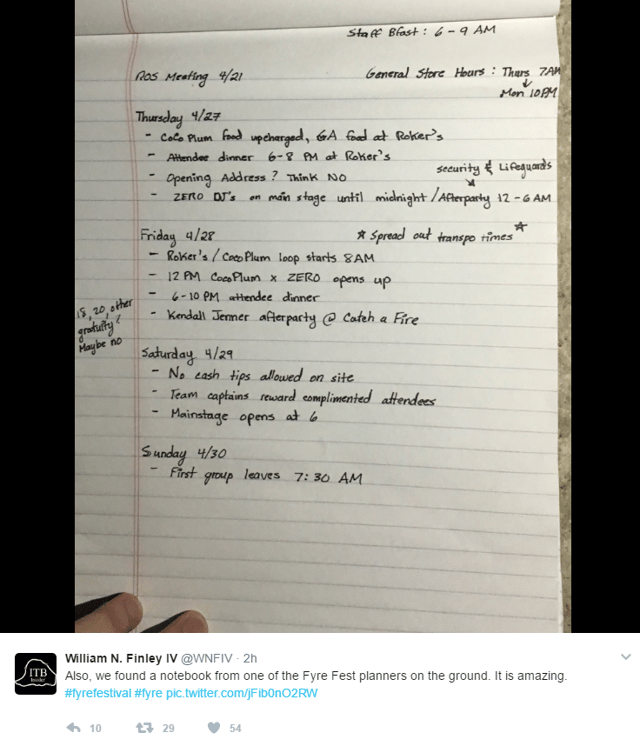 Staff Bfast : 6 - 9 AM
ROS Meeting 4/21
General Store Hours : Thurs 7AM
↓
Mon 10PM
Thursday 4/27
- CoCo Plum food upcharged, GA food at Roker's
- Attendee dinner 6-8 PM at Roker's
- Opening Address? Think NO
security & Lifeguards
- ZERO DJ's on main stage until midnight / Afterparty 12 - 6 AM
Friday 4/28
* Spread out transpo times *
- Roker's / CocoPlum loop starts 8AM
- 12 PM CocoPlum x ZERO opens up
- 6-10 PM attendee dinner
- Kendall Jenner afterparty @ Catch a Fire
18, 20, other
gratuity?
Maybe no
Saturday 4/29
- No cash tips allowed on site
- Team captains reward complimented attendees
- Mainstage opens at 6
Sunday 4/30
- First group leaves 7:30 AM
ITB
Insider
William N. Finley IV @WNFIV · 2h
Also, we found a notebook from one of the Fyre Fest planners on the ground. It is amazing.
#fyrefestival #fyre pic.twitter.com/jFib0nO2RW
10 29 54